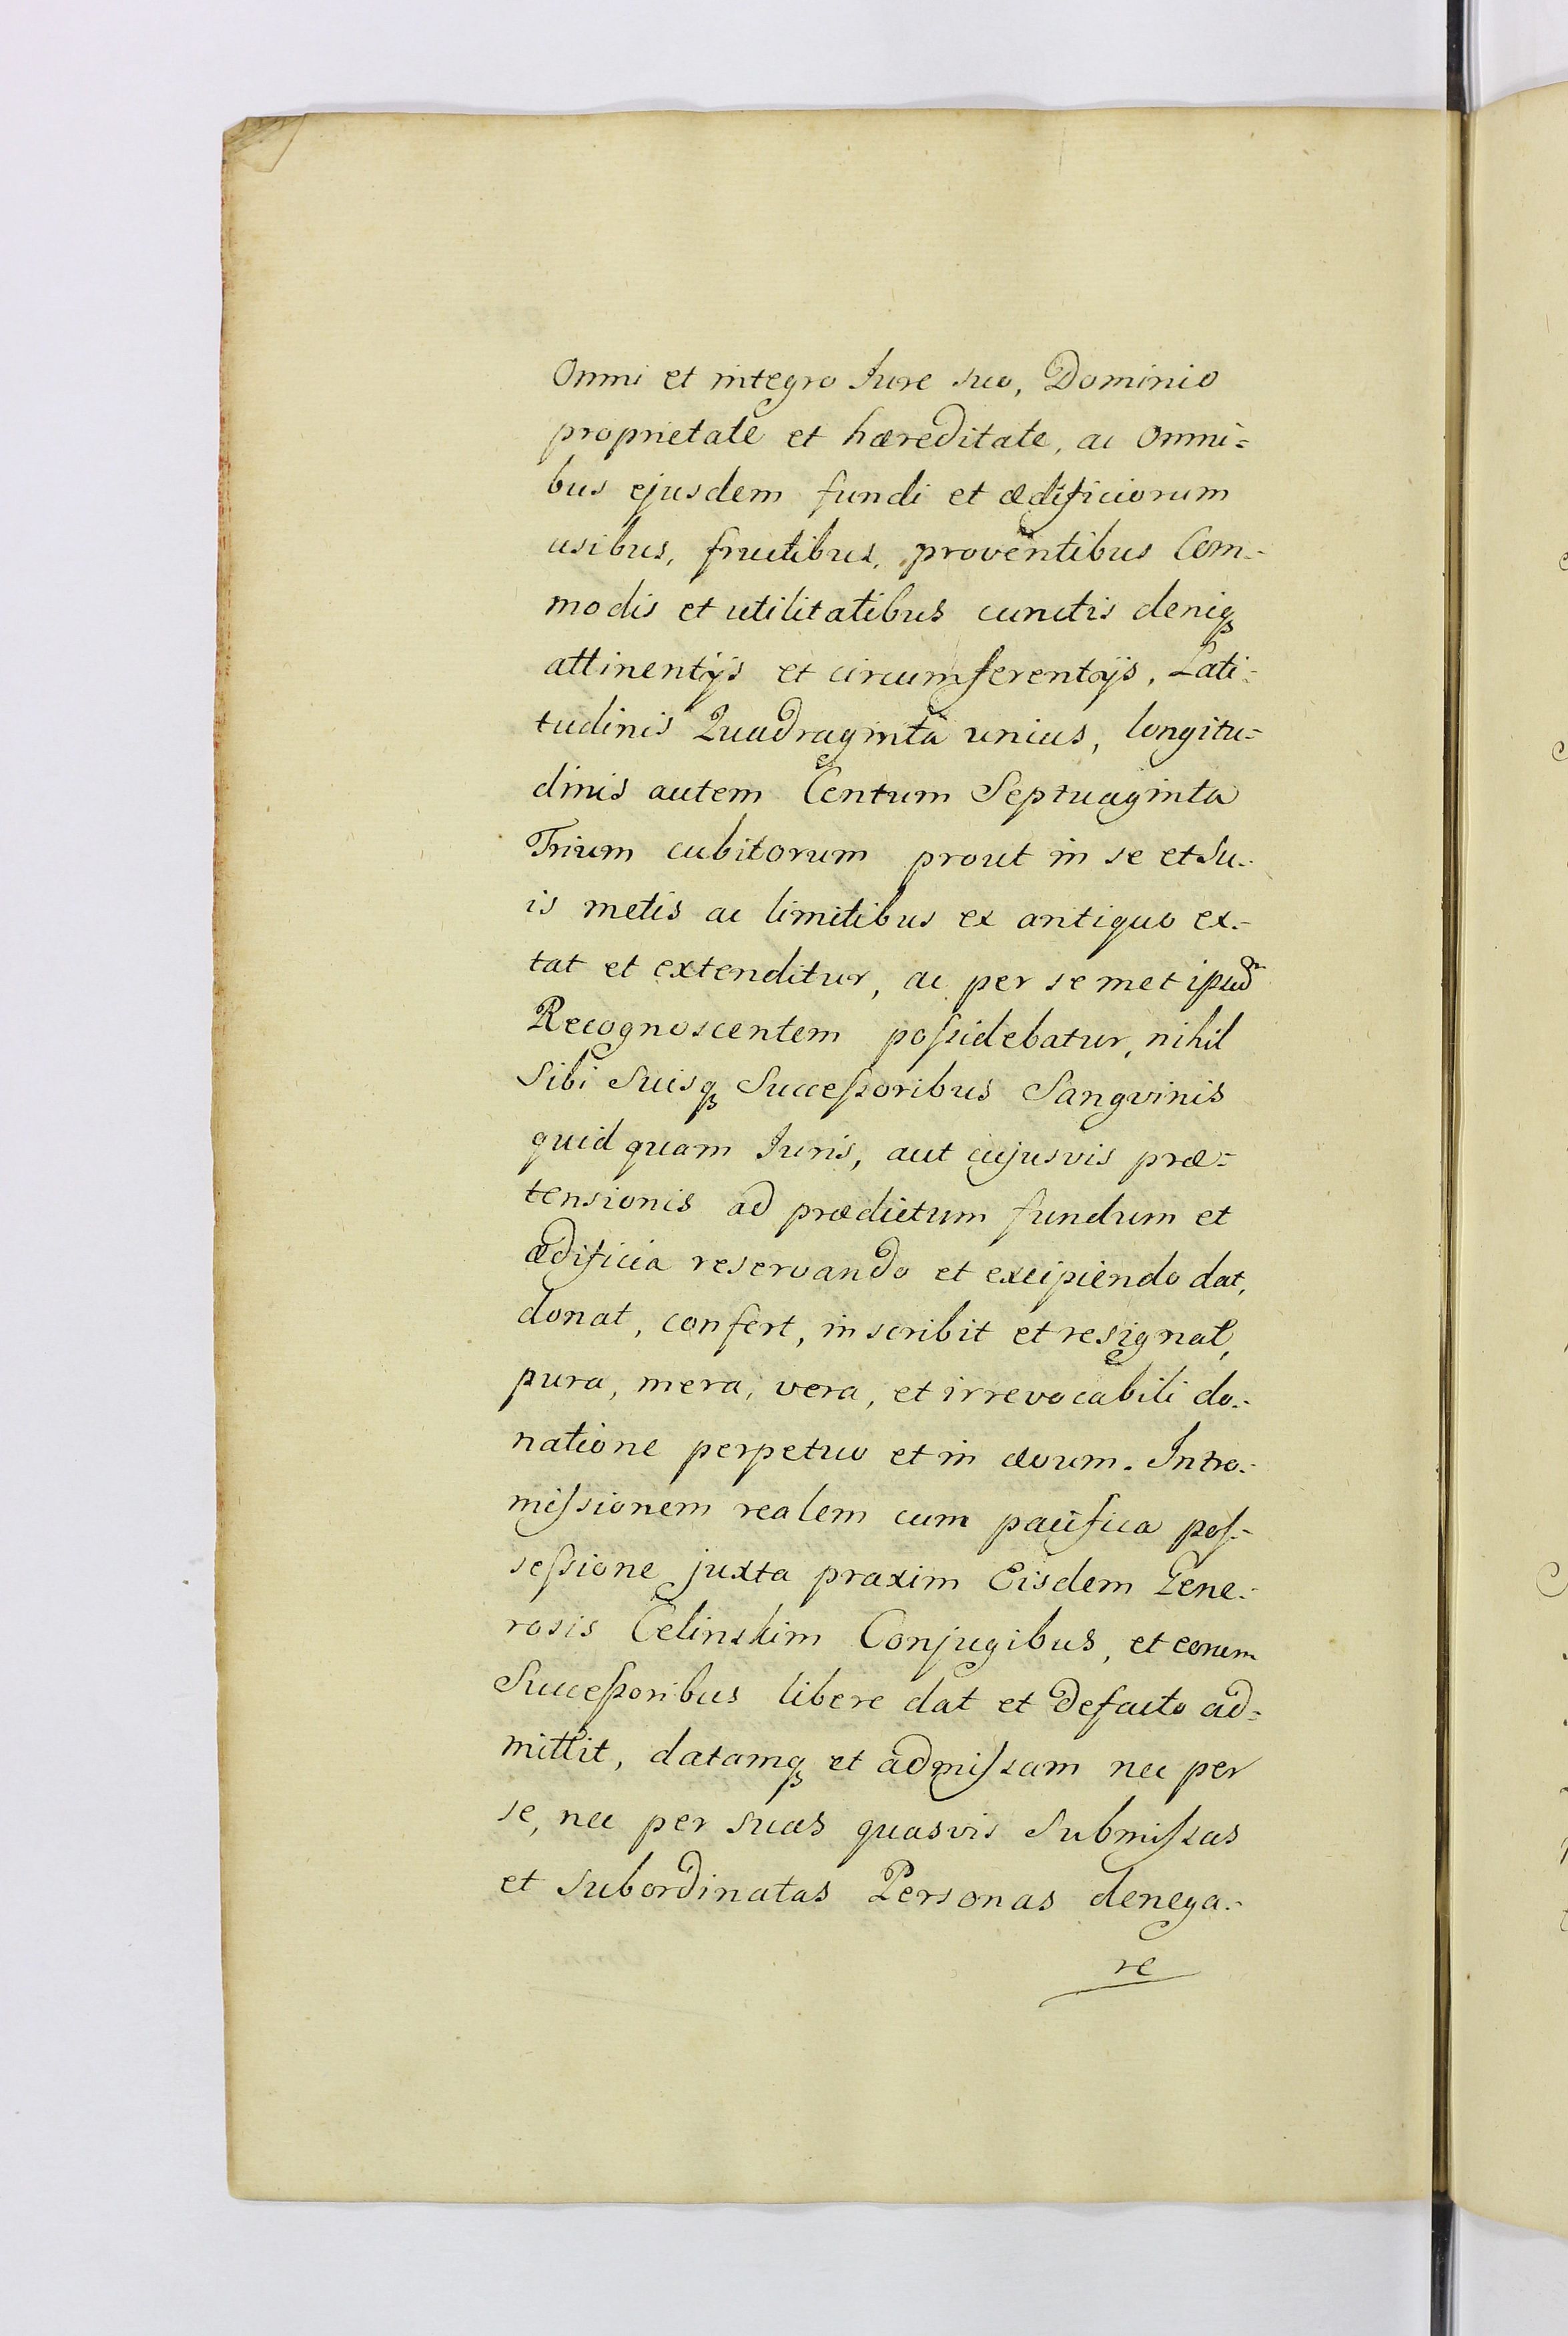 Omni et integro Jure suo, Dominio
proprietate et hæreditate, ac Omni=
bus ejusdem fundi et ædificiorum
usibus, fructibus, proventibus Com=
modis et utilitatibus cunctis deniqꝫ
attinentÿs et circumferentÿs, Lati=
tudinis Quadraginta unius, longitu=
dinis autem Centum Septuaginta
Trium cubitorum prout in se et Su=
is metis ac limitibus ex antiquo ex=
tat et extenditur, ac per se met ipsũ
Recognoscentem poſsidebatur, nihil
Sibi Suisqꝫ Succeſsoribus Sangvinis
quid quam Juris, aut cujusvis præ=
tensionis ad prædictum fundum et
ædificia reservando et excipiendo dat,
donat, confert, inscribit et resignat,
pura, mera, vera, et irrevocabili do=
natione perpetuo et in ævum. Intro=
miſsionem realem cum pacifica poſ=
seſsione juxta praxim Eisdem Gene=
rosis Celinskim Conjugibus, et eorum
Succeſsoribus libere dat et defacto ad=
mittit, datamqꝫ et admiſsam nec per
se, nec per suas quasvis Submiſsas
et Subordinatas Personas denega=
re